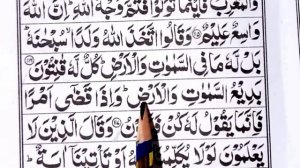 الْمَغْرِبُ فَاَيْنَمَا تُوَلُّوْا فَثَمَّ وَجْهُ اللّٰهِ اِنَّ اللّٰهَ
وَاسِعٌ عَلِيْمٌ وَقَالُوا اتَّخَذَ اللّٰهُ وَلَدًا سُبْحٰنَهٗ
بَلْ لَّهٗ مَا فِی السَّمٰوٰتِ وَالْاَرْضِ كُلٌّ لَّهٗ قٰنِتُوْنَ
بَدِيْعُ السَّمٰوٰتِ وَالْاَرْضِ وَاِذَا قَضٰٓی اَمْرًا
فَاِنَّمَا يَقُوْلُ لَهٗ كُنْ فَيَكُوْنُ وَقَالَ الَّذِيْنَ لَا
يَعْلَمُوْنَ لَوْلَا يُكَلِّمُنَا اللّٰهُ اَوْ تَاْتِيْنَآ اٰيَةٌ